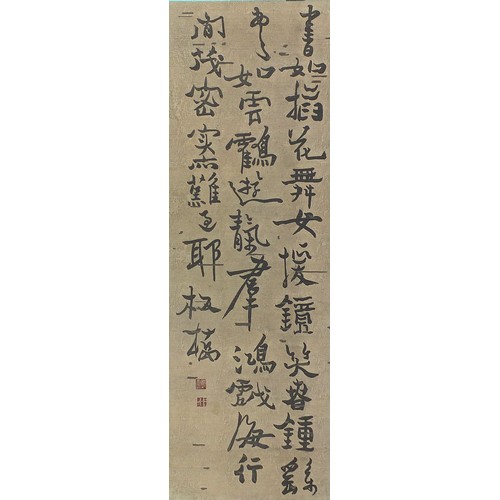 書如插花舞女援鏡笑春鍾繇
書如雲鸖遊靝羣鴻戲海行
間茂密實亦難過耶板橋